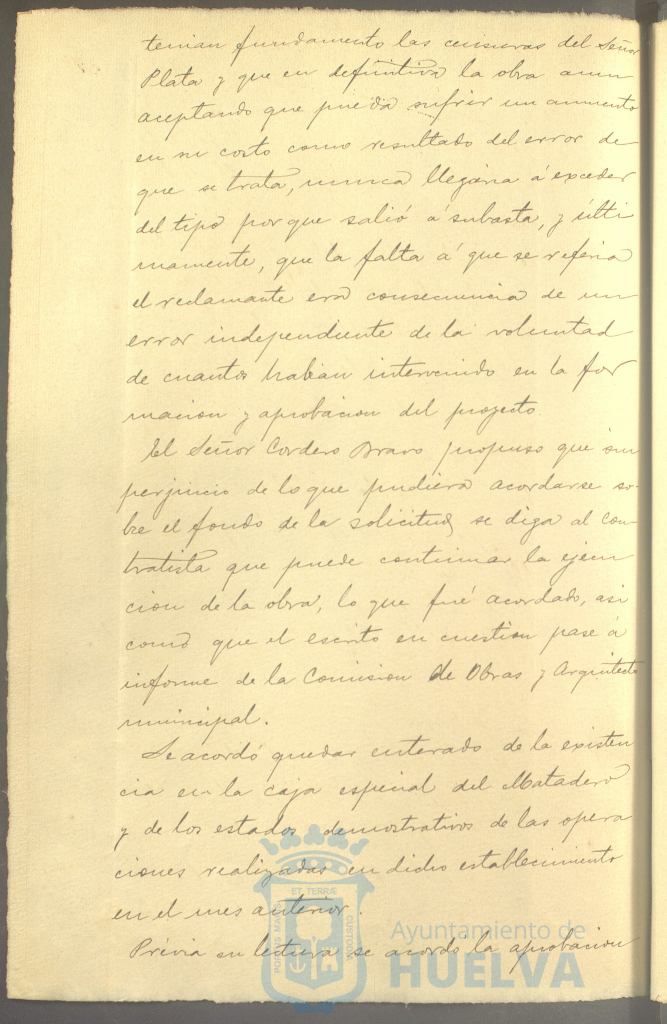 tenian fundamento las censuras del Señor
Plata y que en definitiva la obra aun
aceptando que pueda sufrir un aumento
en su costo como resultado del error de
que se trata, nunca llegaria á exceder
del tipo por que salió á subasta, y últi
mamente, que la falta á que se referia
el reclamante era consecuencia de un
error independiente de la voluntad
de cuantos habian intervenido en la for
macion y aprobacion del proyecto.
El Señor Cordero Bravo propuso que sin
perjuicio de lo que pudiera acordarse so-
bre el fondo de la solicitud se diga al con-
tratista que puede continuar la ejecu
cion de la obra, lo que fué acordado, asi
como que el escrito en cuestion pase á
informe de la Comision de Obras y Arquitecto
municipal.
Se acordó quedar enterado de la existen
cia en la caja especial del Matadero
y de los estados demostrativos de las opera
ciones realizadas en dicho establecimiento
en el mes anterior.
Prévia su lectura se acordó la aprobacion
PORTUS MARIS ET TERRÆ CUSTODIA
Ayuntamiento de
HUELVA